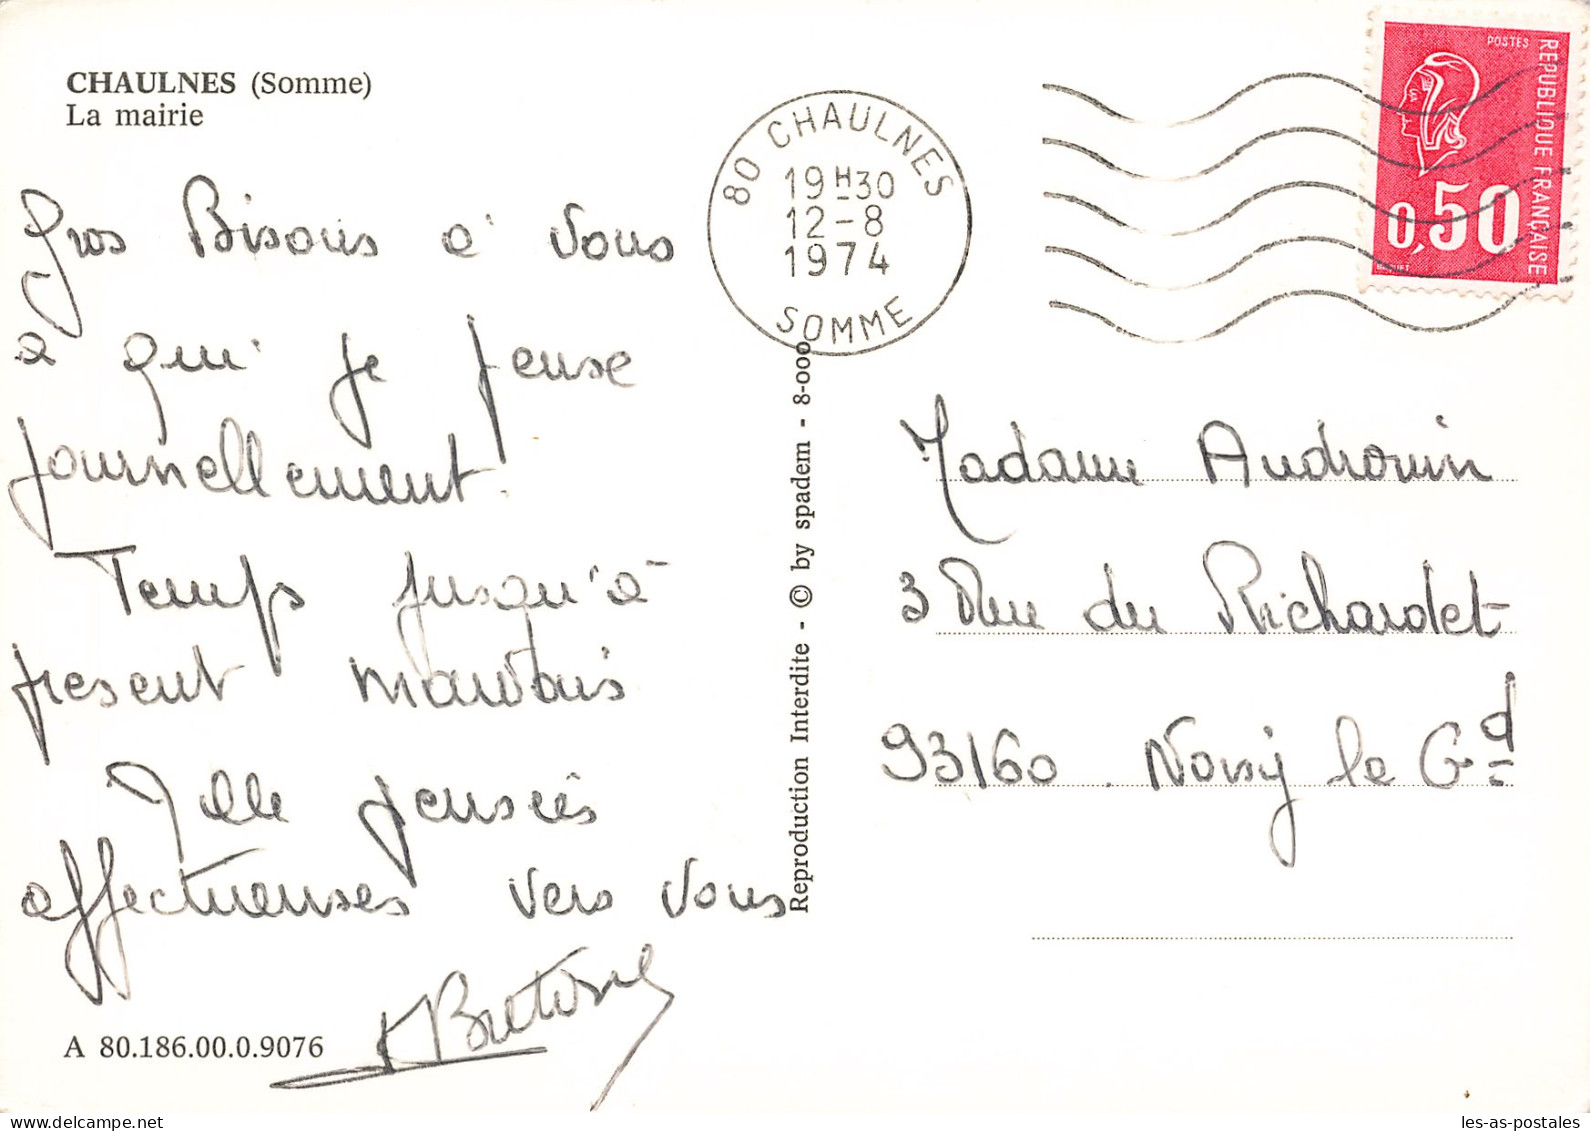 CHAULNES (Somme)
La mairie
Gros Bisous a vous
a qui je pense
journellement.
Temps jusqu'à
present mauvais
Mille pensées
affectueuses vers vous
A 80.186.00.0.9076
80 CHAULNES
19H30
12-8
1974
SOMME
POSTES
REPUBLIQUE FRANCAISE
0,50
Reproduction Interdite - © by spadem - 8-000
Madame Audrouin
3 Rue du Richardet
93160. Noisy le Gd
les-as-postales